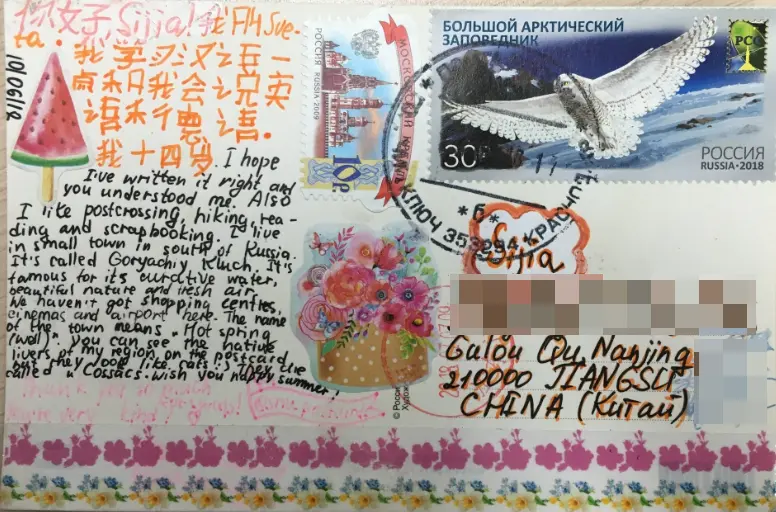 你好, Sijia! 我叫 Sve-
ta. 我学习汉语一
点和我会说英
语和德语.
我十四岁. I hope
I've written it right and
you understood me. Also
I like postcrossing, hiking, rea-
ding and scrapbooking. I live
in small town in south of Russia.
It's called Goryachiy Kluch. It's
famous for its curative water,
beautiful nature and fresh air.
We haven't got shopping centres,
cinemas and airport here. The name
of the town means "Hot spring
(well)". You can see the native
livers of my region on the postcard,
but they look like cats is they're
called cossacs. wish you happy summer!
РОССИЯ RUSSIA 2009
МОСКОВСКИЙ КРЕМЛЬ
10
БОЛЬШОЙ АРКТИЧЕСКИЙ
ЗАПОВЕДНИК
РСС
30
РОССИЯ
RUSSIA • 2018
*б*
КЛЮЧ 353294 КРАСНОД
Sijia
Gulou Qu, Nanjing
210000 JIANGSU
CHINA (Китай)